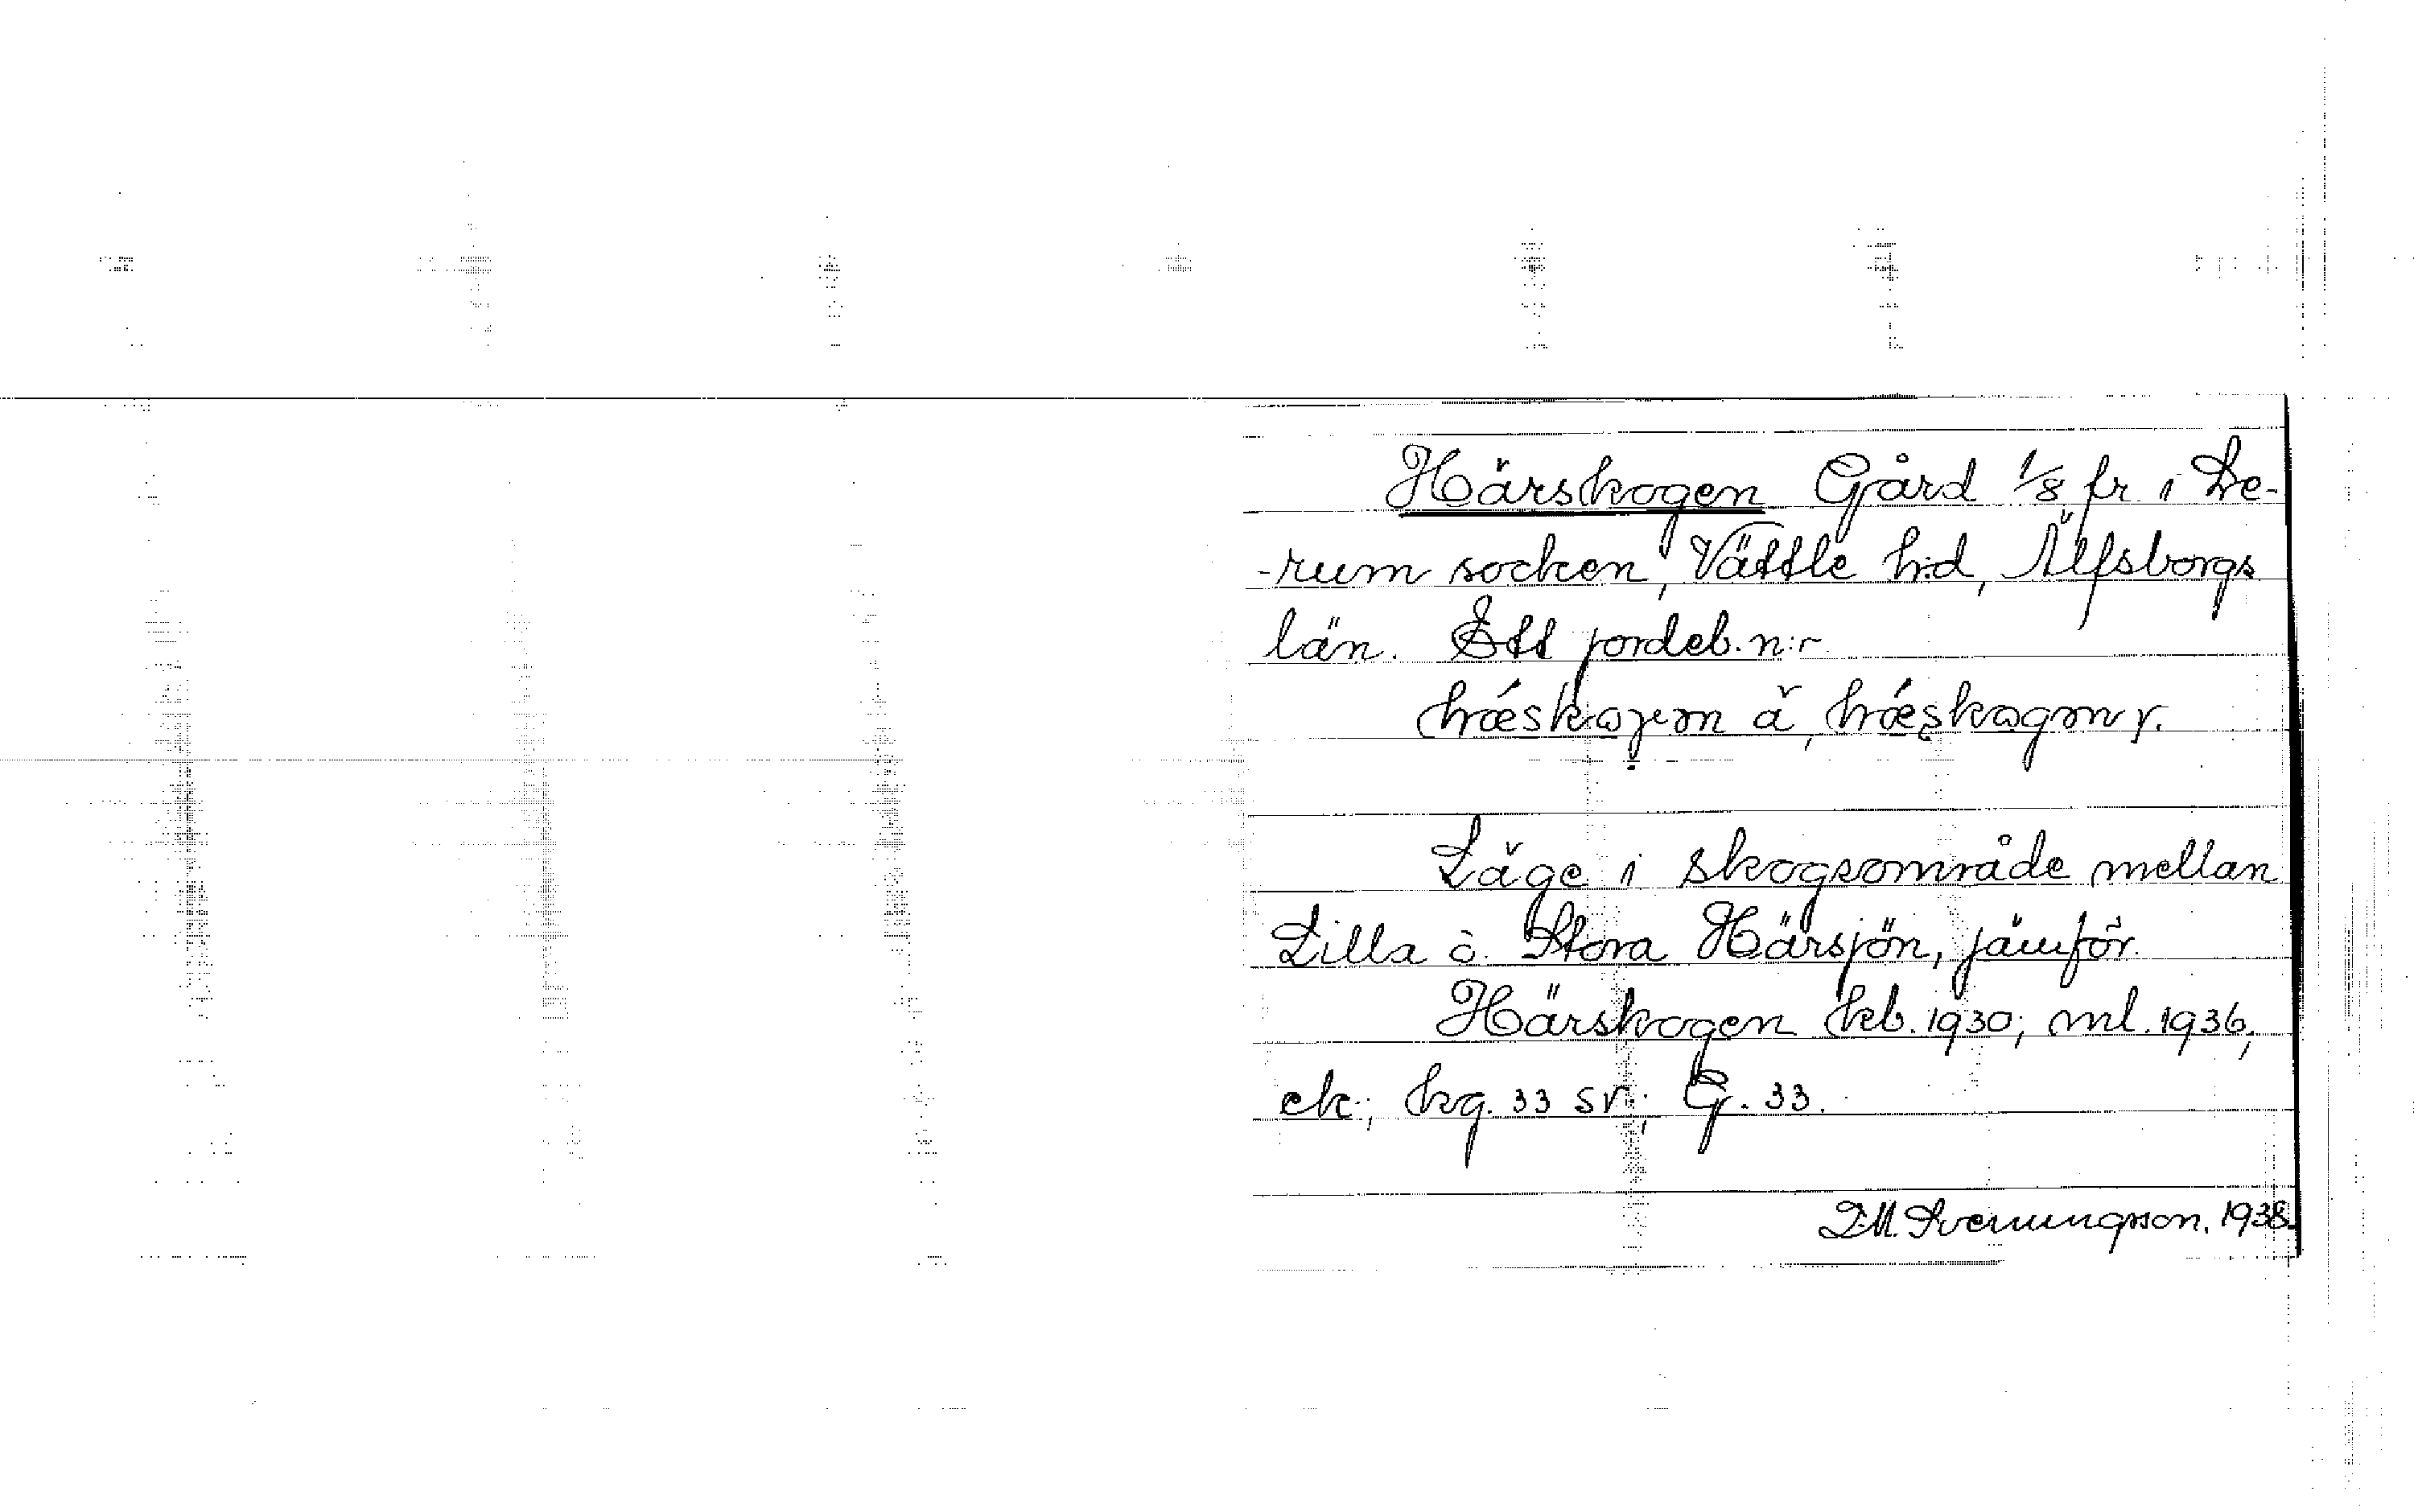 Härskogen Gård 1/8 fr i Le-
-rum socken, Vättle h:d, Älfsborgs
län. Ett jordeb. n:r
hǽskoɣen ä, hǽskogen y.
Läge i skogsområde mellan
Lilla o. Stora Härsjön, jämför
Härskogen kb. 1930; ml. 1936,
ek; kg. 33 sv; G. 33.
D.M. Svenungsson. 1938.